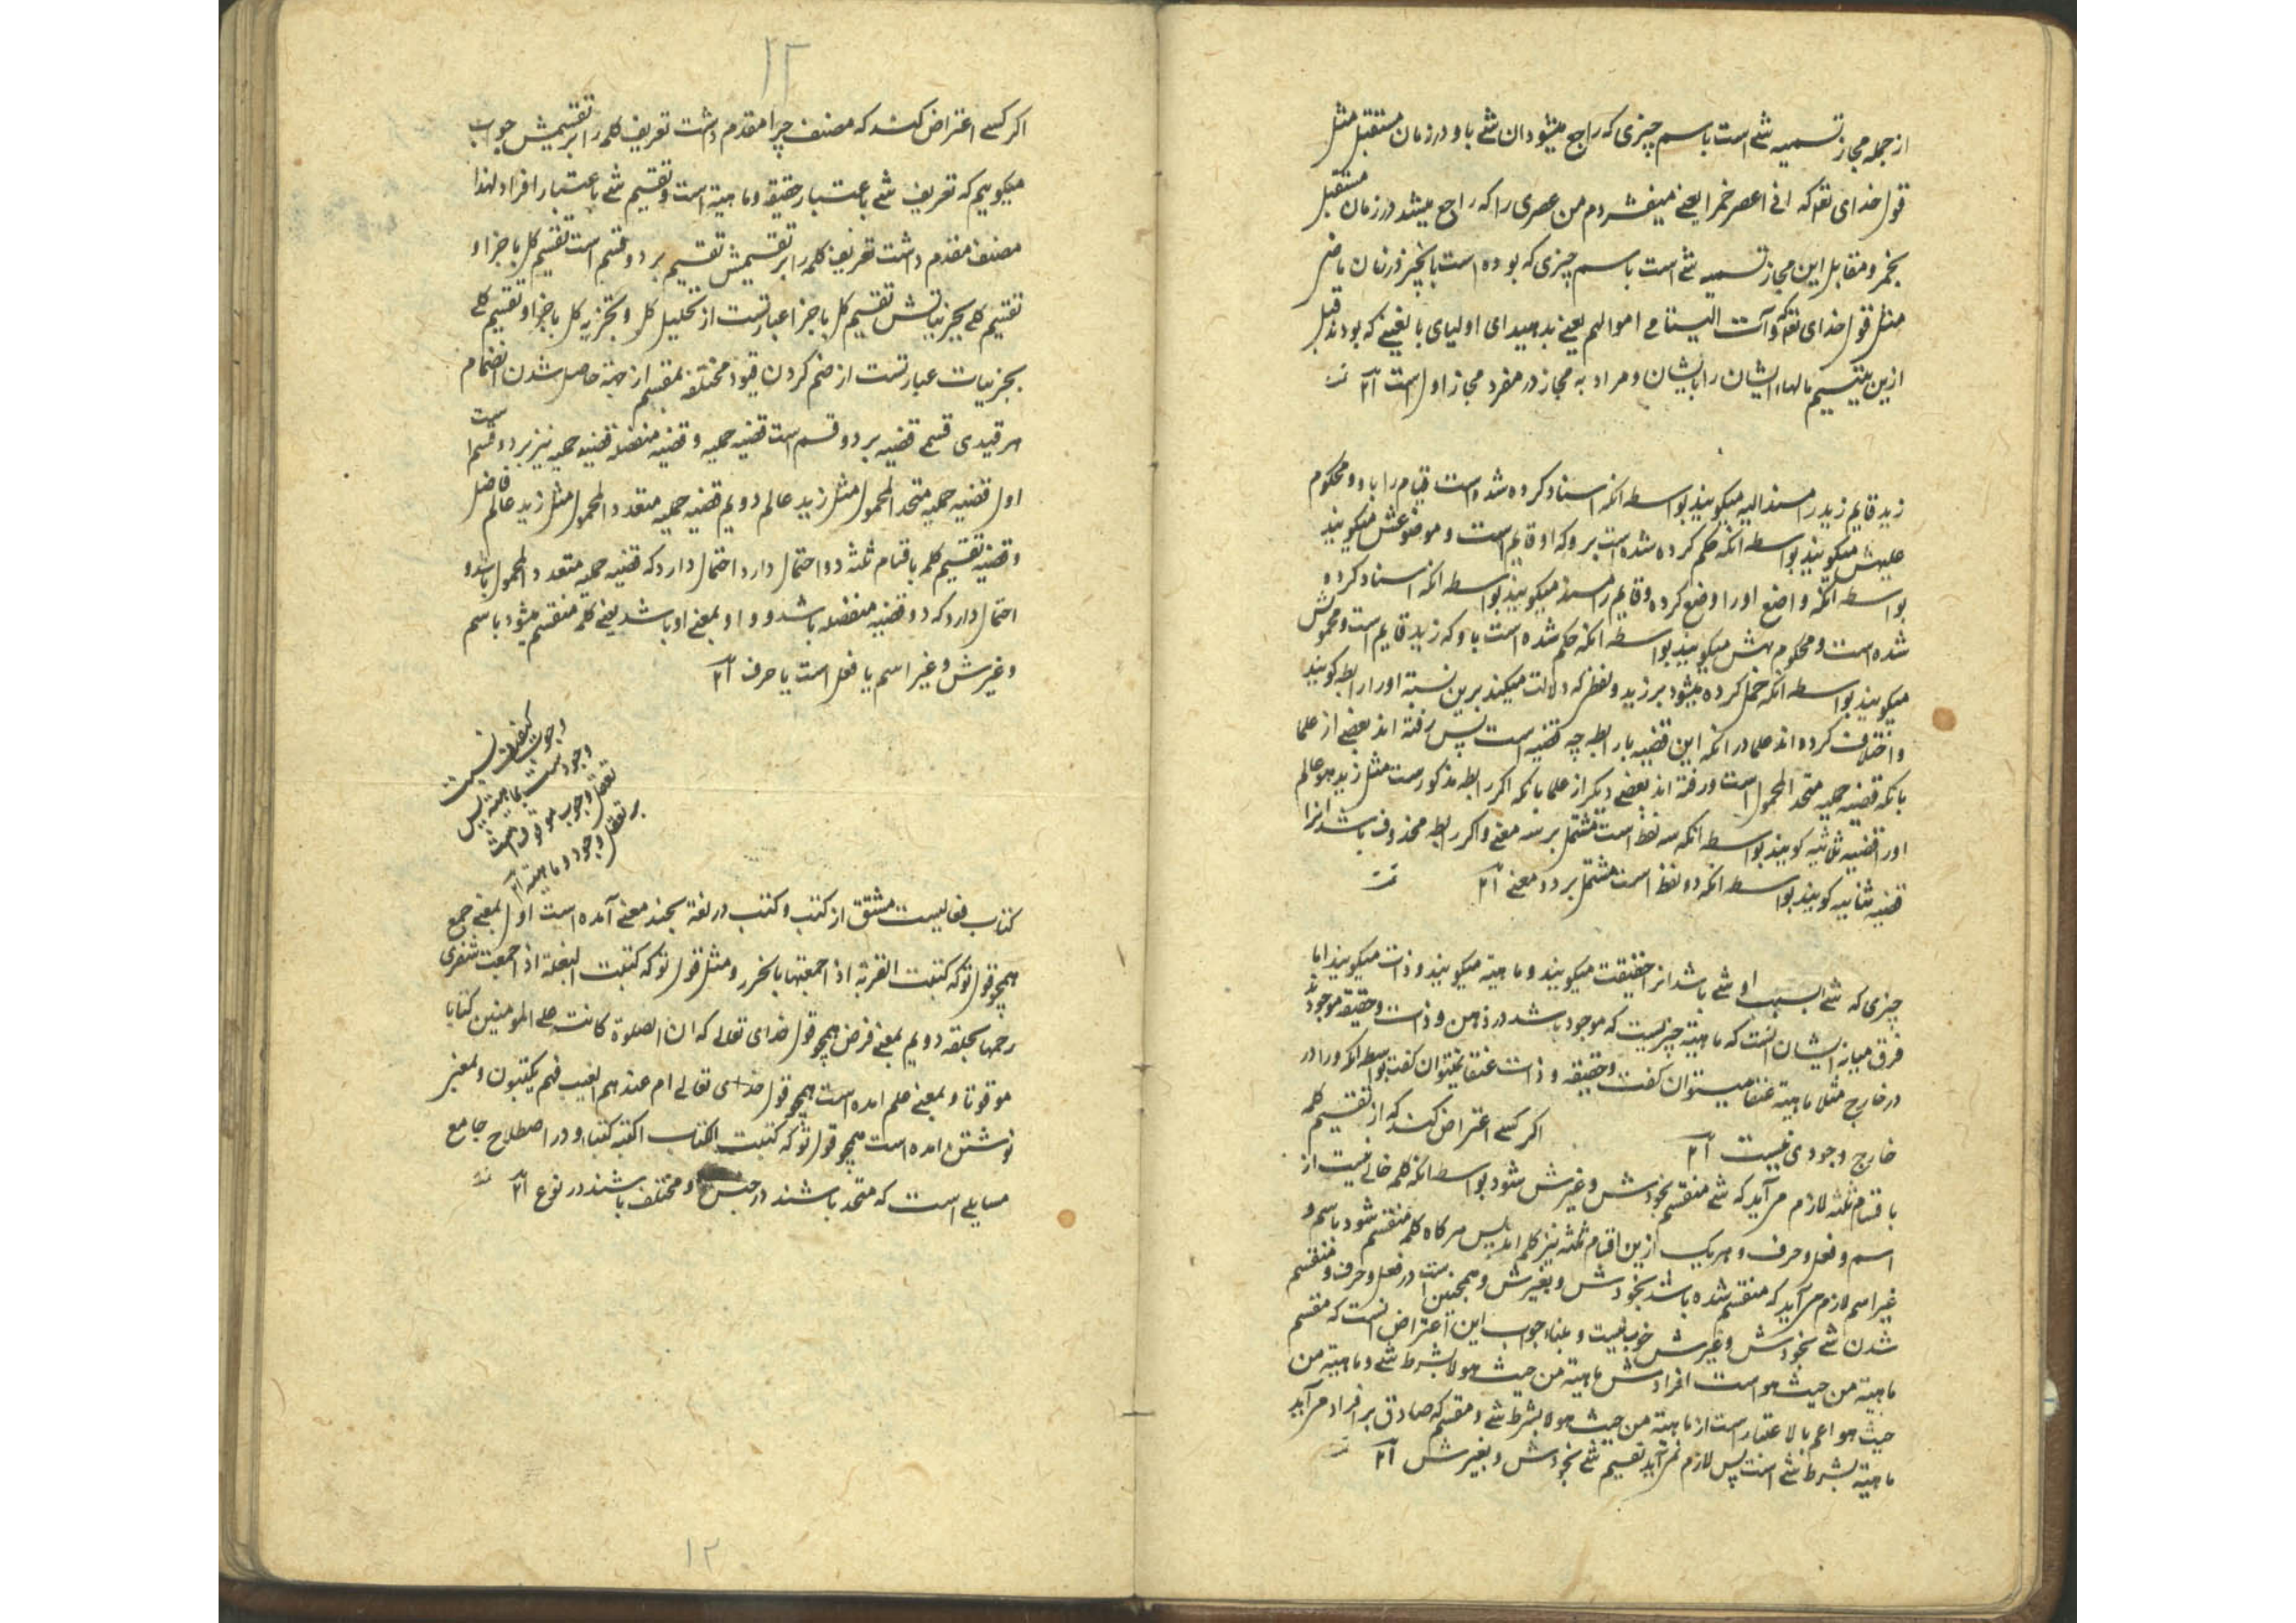 از جمله مجاز تسمیه شی است باسم چیزی که راجع میشود ان شی باو در زمان مستقبل مثل
قول خدای تعه که انی اعصر خمرا یعنی میفشردم من عصری را که راجع میشد در زمان مستقبل
بخمر و مقابل این مجاز تسمیه شی است باسم چیزی که بوده است بانچیز در زمان ماضی
مثل قول خدای تعه که و آت الیتامی اموالهم یعنی بدهید ای اولیای بالغینی که بودند قبل
ازین یتیم مالهاء ایشان را بایشان و مراد به مجاز در مفرد مجاز اول است ۱۲
زید قایم زید را مسند الیه میکویند بواسطه انکه اسناد کرده شده است قیام را باو و محکوم
علیهش میکویند بواسطه انکه حکم کرده شده است برو که او قایم است و موضوعش میکویند
بواسطه انکه واضع او را وضع کرده و قایم را مسند میکویند بواسطه انکه اسناد کرده
شده است و محکوم بهش میکویند بواسطه انکه حکم شده است باو که زید قایم است و محمولش
میکویند بواسطه انکه حمل کرده میشود بر زید و لفظی که دلالت میکند برین نسبة او را رابطه کویند
و اختلاف کرده اند علما در انکه این قضیه با رابطه چه قضیه است پس رفته اند بعضی از علما
بانکه قضیه حملیه متحد المحمول است و رفته اند بعضی دیکر از علما بانکه اکر رابطه مذکور است مثل زید هو عالم
او را قضیه ثلاثیه کویند بواسطه انکه سه لفظ است مشتمل بر سه معنی و اکر رابطه محذوف باشد انرا
قضیه ثنائیه کویند بواسطه انکه دو لفظ است مشتمل بر دو معنی ۱۲
چیزی که شی بسبب او شی باشد انرا حقیقت میکویند و ماهیته میکویند و ذات میکویند اما
فرق میانه ایشان انست که ماهیته چیزیست که موجود باشد در ذهن و ذات و حقیقه موجودند
در خارج مثلا ماهیته عنقا میتوان کفت و حقیقه و ذات عنقا نمیتوان کفت بواسطه انکه او را در
خارج وجودی نیست ۱۲ اکر کسی اعتراض کند که از تقسیم کلمه
باقسام ثلثه لازم مر آید که شی منقسم بخودش و غیرش شود بواسطه انکه کلمه خالی نیست از
اسم و فعل و حرف و هریک ازین اقسام ثلثه نیز کلمه اند پس هرکاه کلمه منقسم شود باسم و
غیر اسم لازم مر آید که منقسم شده باشد بخودش و بغیرش و همچنین است در فعل و حرف و منقسم
شدن شی بخودش و غیرش خوب نیست جواب این اعتراض انست که مقسم
ماهیته من حیث هو است افرادش ماهیته من حیث هو لا بشرط شی و ماهیته من
حیث هو اعم بالاعتبار است از ماهیته من حیث هو لا بشرط شی و مقسم که صادق بر افراد مر آید
ماهیته بشرط شی است پس لازم نمر آید تقسیم شی بخودش و بغیرش ۱۲
۱۲
اکر کسی اعتراض کند که مصنف چرا مقدم داشت تعریف کلمه را بر تقسیمش جواب
میکوییم که تعریف شی باعتبار حقیقه و ماهیته است و تقسیم شی باعتبار افراد لهذا
مصنف مقدم داشت تعریف کلمه را بر تقسیمش تقسیم بر دو قسم است تقسیم کل باجزا و
تقسیم کلی بجزئیاتش تقسیم کل باجزا عبارتست از تحلیل کل و تجزیه کل باجزا و تقسیم کلی
بجزئیات عبارتست از ضم کردن قیود مختلفه بمقسم از جهة حاصل شدن انضمام
هر قیدی قسمی قضیه بر دو قسم است قضیه حملیه و قضیه منفصله قضیه حملیه نیز بر دو قسم است
اول قضیه حملیه متحد المحمول مثل زید عالم دویم قضیه حملیه متعدد المحمول مثل زید عالم فاضل
و قضیه تقسیم کلمه باقسام ثلثه دو احتمال دارد احتمال دارد که قضیه حملیه متعدد المحمول باشد و
احتمال دارد که دو قضیه منفصله باشد و واو بمعنی او باشد یعنی کلمه منقسم میشود باسم
و غیرش و غیر اسم یا فعل است یا حرف ۱۲
وجوب کیفیت نسبت
وجود است بماهیته پس
تعقل وجوب موقوف است
بر تعقل وجود و ماهیته ۱۲
کتاب فعالیست مشتق از کتب و کتب در لغة بچند معنی آمده است اول بمعنی جمع
همچو قول تو که کتبت القربة اذا جمعتها بالخرز و مثل قول تو که کتبت البغلة اذا جمعت شفری
رحمها بحلقه دویم بمعنی فرض همچو قول خدای تعالی که ان الصلوة کانت علی المومنین کتابا
موقوتا و بمعنی علم امده است همچو قول خدای تعالی ام عندهم الغیب فهم یکتبون و بمعنی
نوشتن امده است همچو قول تو که کتبت الکتاب اکتبه کتبا و در اصطلاح جامع
مسایلی است که متحد باشند در جنس و مختلف باشند در نوع ۱۲
۱۲